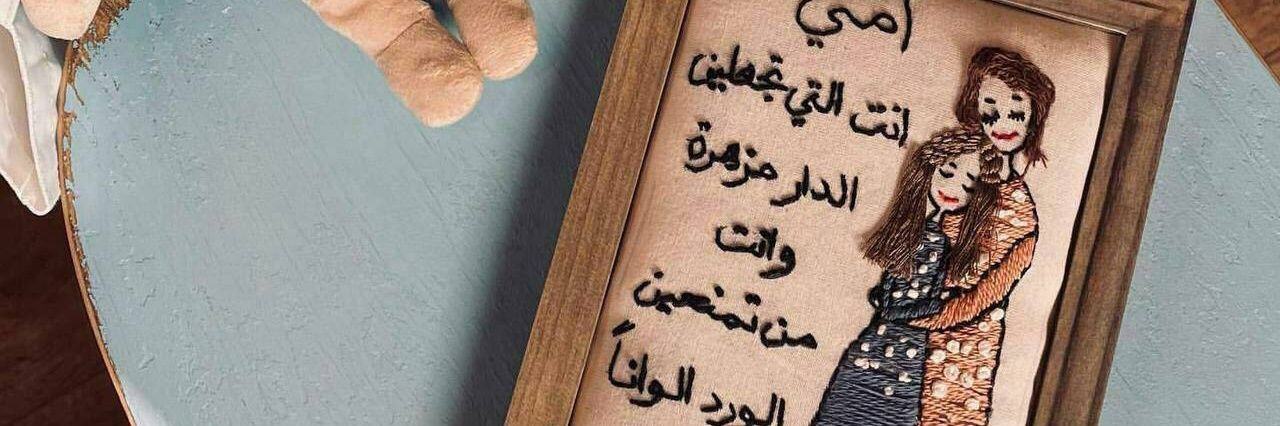 أمي
انت التي تجعلين
الدار مزهرة
وانت
من تمنحين
الورد الواناً